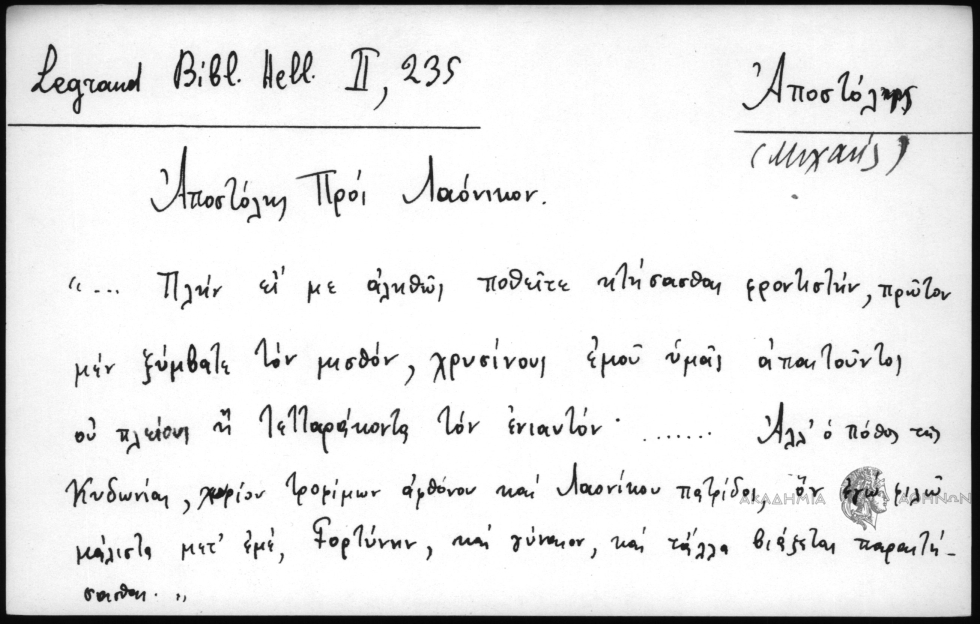 Legrand Bibl. Hell. II, 235
Ἀποστόλης
(Μιχαήλ)
Ἀποστόλης Πρός Λαόνικον.
"... Πλήν εἰ με ἀληθῶς ποθεῖτε κτήσασθαι φροντιστήν, πρῶτον
μέν ξύμβατε τόν μισθόν, χρυσίνους ἐμοῦ ὑμᾶς ἀπαιτοῦντος
οὐ πλείους ἤ τετταράκοντα τόν ἐνιαυτόν· ....... Ἀλλ' ὁ πόθος τῆς
Κυδωνίας, χωρίον τροφίμων ἀφθόνου καί Λαονίκου πατρίδος, ὅν ἐγώ φιλῶ
μάλιστα μετ' ἐμέ, Γορτύνην, καί γύναιον, καί τἆλλα βιάζεται παραιτή-
σασθαι. "
ΑΚΑΔΗΜΙΑ ΑΘΗΝΩΝ